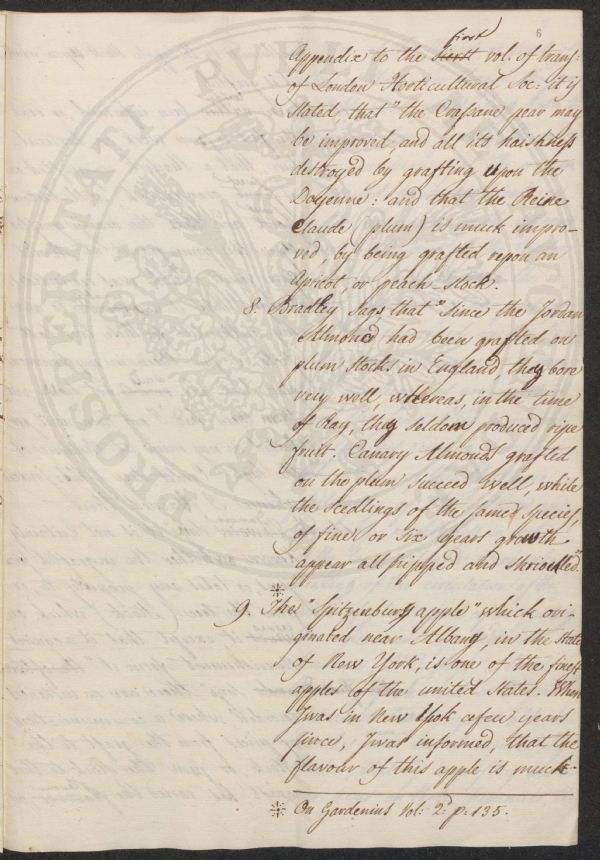 6
first
Appendix to the sierst vol. of trans:
of London Horticultural Soc: it is
stated, that "the Crassane pear may
be improved, and all its haishness
destroyed by grafting upon the
Doyenne: and that the Reine
Claude (plum) is muck impro-
ved, by being grafted upon an
Apricot, or peach-stock.
8. Bradley says, that "since the Jordan
Almond had been grafted on
plum stocks in England, they bore
very well, whereas, in the time
of Ray, they seldom produced ripe
fruit. Canary Almonds grafted
on the plum succeed well, while
the seedlings of the same species,
of five or six years growth
appear all fripped and shrioelled."
9. The "Spitzenburg apple" which ori-
ginated near Albany, in the State
of New York, is one of the finest
apples of the united States. When
I was in New York a few years
since, I was informed, that the
flavour of this apple is much
On Gardening Vol: 2d p: 135.
PROSPERITATI PVBLI